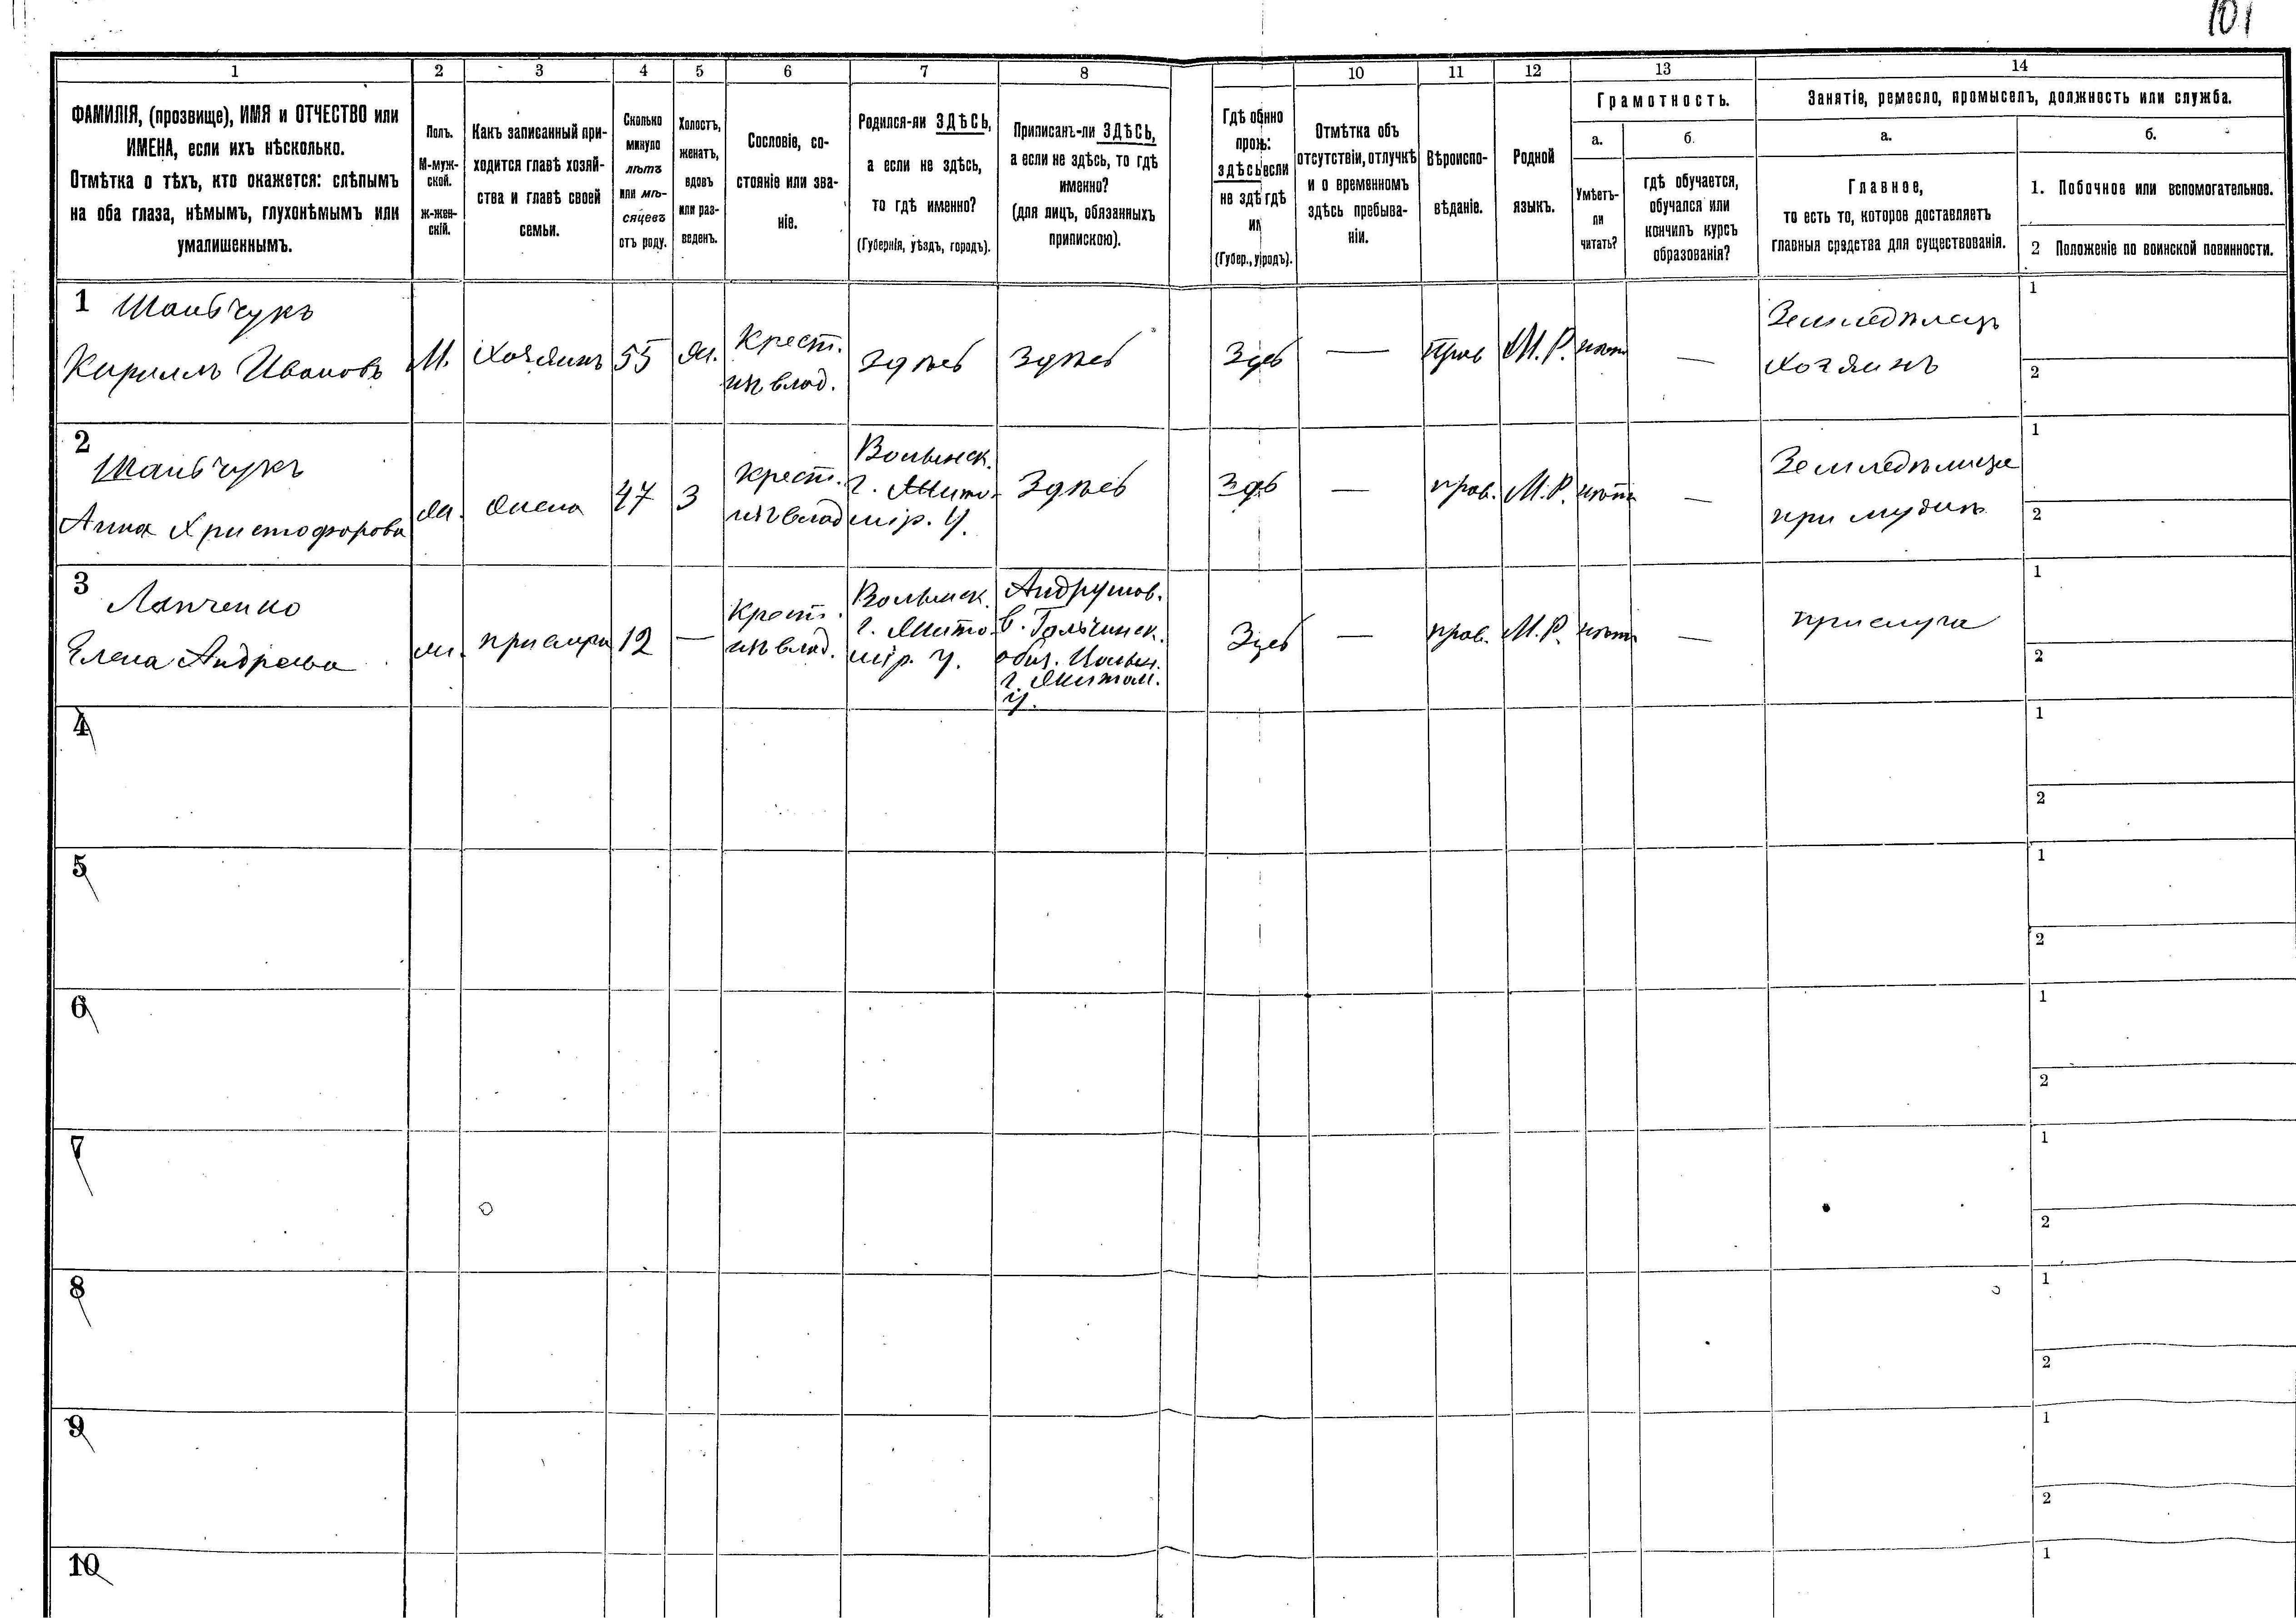 101
1 2 3 4 5 6 7 8 10 11 12 13 14
ФАМИЛІЯ, (прозвище), ИМЯ и ОТЧЕСТВО или
ИМЕНА, если ихъ нѣсколько.
Отмѣтка о тѣхъ, кто окажется: слѣпымъ
на оба глаза, нѣмымъ, глухонѣмымъ или
умалишеннымъ.
Полъ.
М-муж-
ской.
ж-жен-
скій.
Какъ записанный при-
ходится главѣ хозяй-
ства и главѣ своей
семьи.
Сколько
минуло
лѣтъ
или мѣ-
сяцевъ
отъ роду.
Холостъ,
женатъ,
вдовъ
или раз-
веденъ.
Сословіе, со-
стояніе или зва-
ніе.
Родился-ли ЗДѢСЬ,
а если не здѣсь,
то гдѣ именно?
(Губернія, уѣздъ, городъ).
Приписанъ-ли ЗДѢСЬ,
а если не здѣсь, то гдѣ
именно?
(для лицъ, обязанныхъ
припискою).
Гдѣ обнно
прож:
здѣсь если
не здѣ гдѣ
и
(Губер., у родъ).
Отмѣтка объ
отсутствіи, отлучкѣ
и о временномъ
здѣсь пребыва-
ніи.
Вѣроиспо-
вѣданіе.
Родной
языкъ.
Грамотность.
а.
Умѣетъ-
ли
читать?
б.
гдѣ обучается,
обучался или
кончилъ курсъ
образованія?
Занятіе, ремесло, промыселъ, должность или служба.
а.
Главное,
то есть то, которое доставляетъ
главныя средства для существованія.
б.
1. Побочное или вспомогательное.
2 Положеніе по воинской повинности.
1 Шанбчукъ
Кириллъ Ивановъ
М.
Хозяинъ
55
Ж.
Крест.
изъ влад.
Здѣсь
Здѣсь
Здсь
—
Прав
М.Р.
нѣтъ
—
Земледѣлецъ
Хозяинъ
1
2
2
Анна Христофорова
Ж.
Жена
47
З
Крест.
изъ влад
Волынск.
г. Жито-
мір. у.
Здѣсь
Здсь
—
прав.
М.Р.
нѣтъ
—
Земледѣлица
при мужѣ
1
2
3
Лапченко
Елена Андреева
ж.
прислуга
12
—
Крест.
изъ влад.
Волынск.
г. Жито-
мір. у.
Андрушов.
в. Гальчинск.
общ. Волын.
г. Житом.
у.
Здсь
—
прав.
М.Р.
нѣтъ
—
прислуга
1
2
4
1
2
5
1
2
6
1
2
7
1
2
8
1
2
9
1
2
10
1